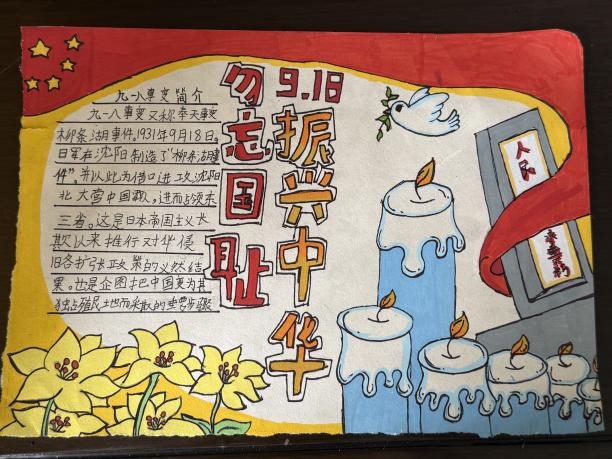 勿忘国耻
9.18
振兴中华
九一八事变简介
九一八事变又称奉天事变
柳条湖事件,1931年9月18日。
日军在沈阳制造了"柳条湖事
件",并以此为借口进攻沈阳
北大营中国军队,进而占领东
三省。这是日本帝国主义长
期以来推行对华侵
旧各扩张政策的必然结
果。也是企图把中国变为其
独占殖民地而采取的重要步骤
人民